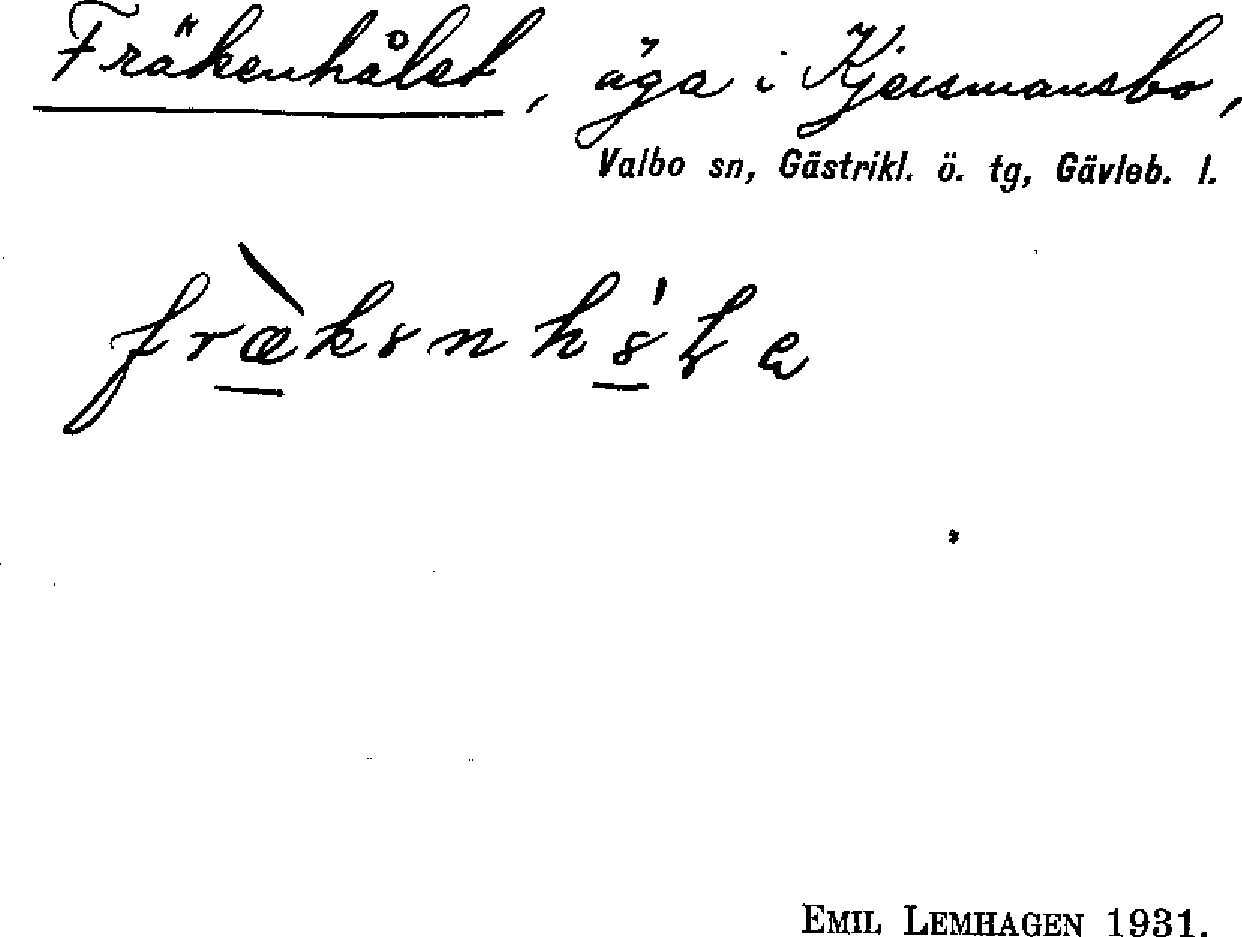 Fräkenhålet, äga i Kjersmansbo,
Valbo sn, Gästrikl. ö. tg, Gävleb. l.
EMIL LEMHAGEN 1931.